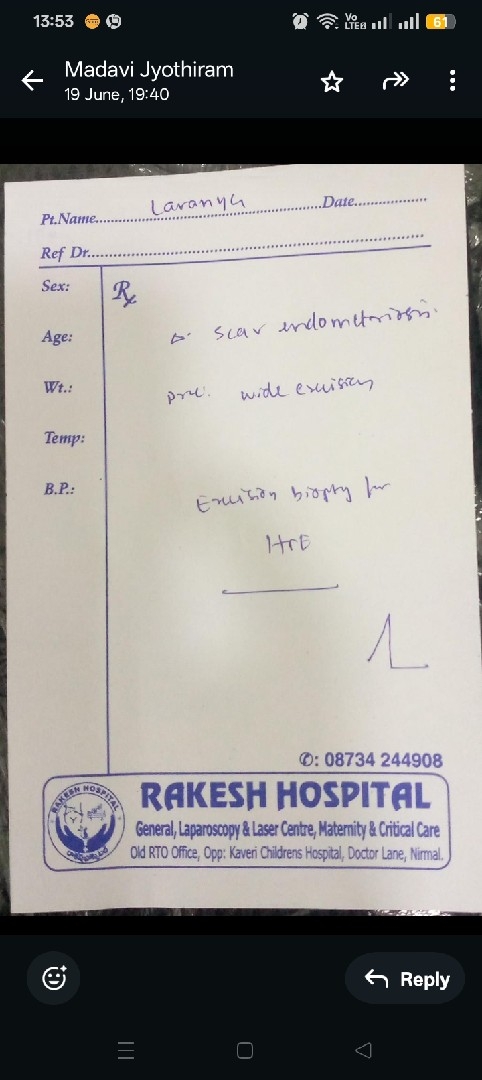 13:53
Vo
LTE
61
Madavi Jyothiram
19 June, 19:40
Pt.Name Lavanya Date
Ref Dr.
Sex:
Rx
Age:
Δ: scar endometriosis.
Wt.:
proc: wide excision
Temp:
B.P.:
Excision biopsy for
HPE
✆: 08734 244908
RAKESH HOSPITAL
RAKESH HOSPITAL
General, Laparoscopy & Laser Centre, Maternity & Critical Care
Old RTO Office, Opp: Kaveri Childrens Hospital, Doctor Lane, Nirmal.
Reply